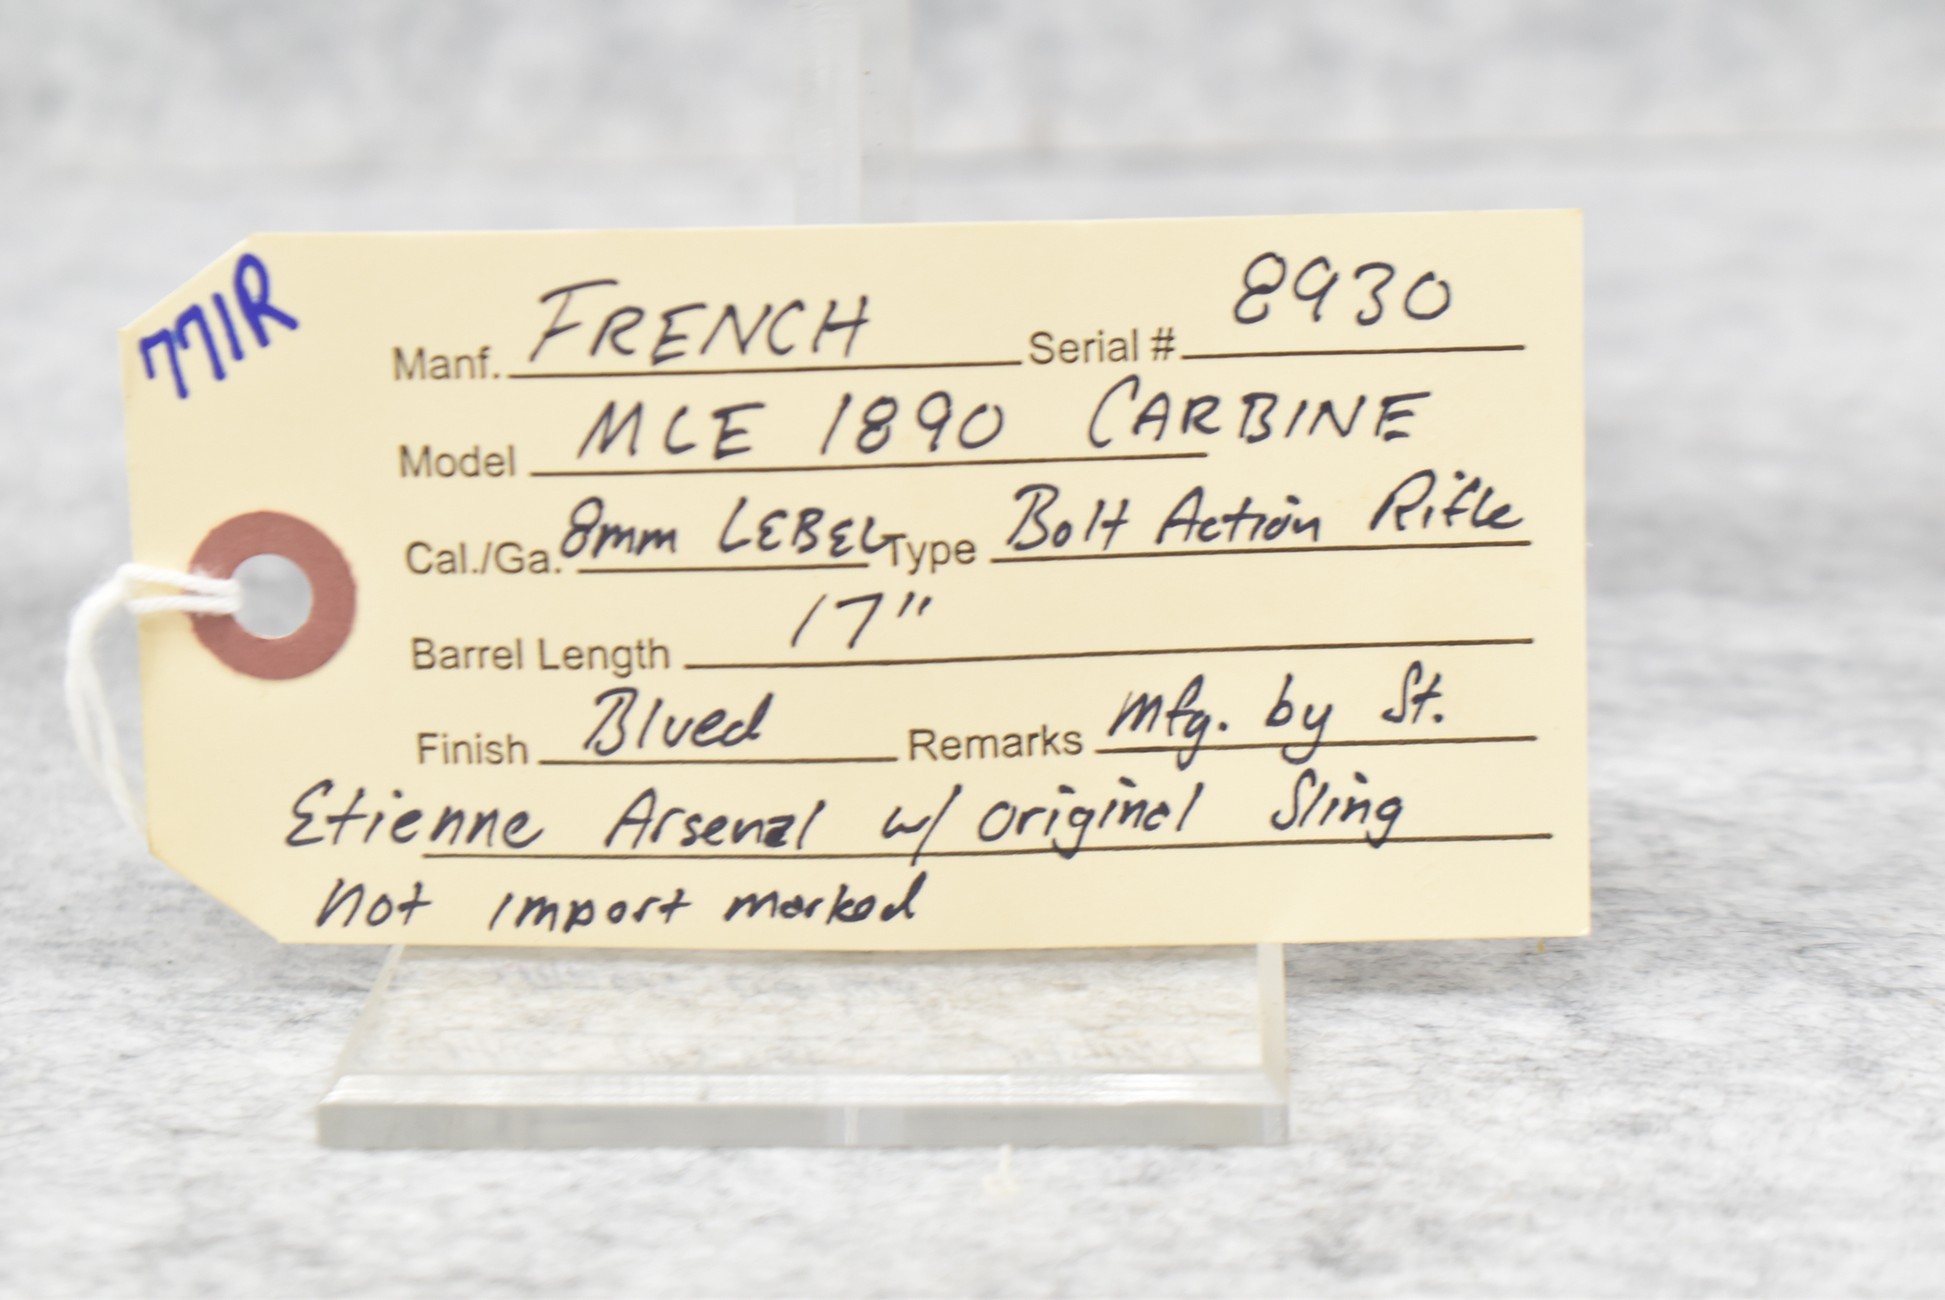 771R
Manf. FRENCH Serial # 8930
Model MLE 1890 CARBINE
Cal./Ga. 8mm LEBEL Type Bolt Action Rifle
Barrel Length 17"
Finish Blued Remarks Mfg. by St.
Etienne Arsenal w/ original Sling
Not import marked